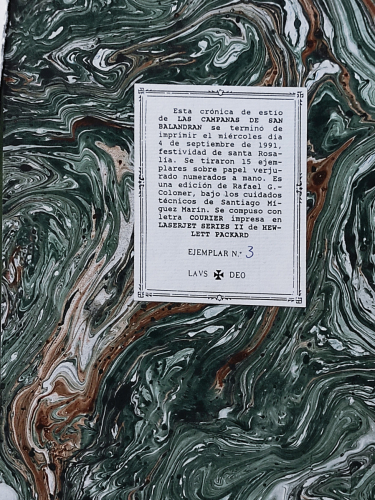 Esta crónica de estio
de LAS CAMPANAS DE SAN
BALANDRAN se termino de
imprimir el miércoles dia
4 de septiembre de 1991,
festividad de santa Rosa-
lía. Se tiraron 15 ejem-
plares sobre papel verju-
rado numerados a mano. Es
una edición de Rafael G.-
Colomer, bajo los cuidados
técnicos de Santiago Mí-
guez Marín. Se compuso con
letra COURIER impresa en
LASERJET SERIES II de HEW-
LETT PACKARD
EJEMPLAR N.º 3
LAVS ✠ DEO